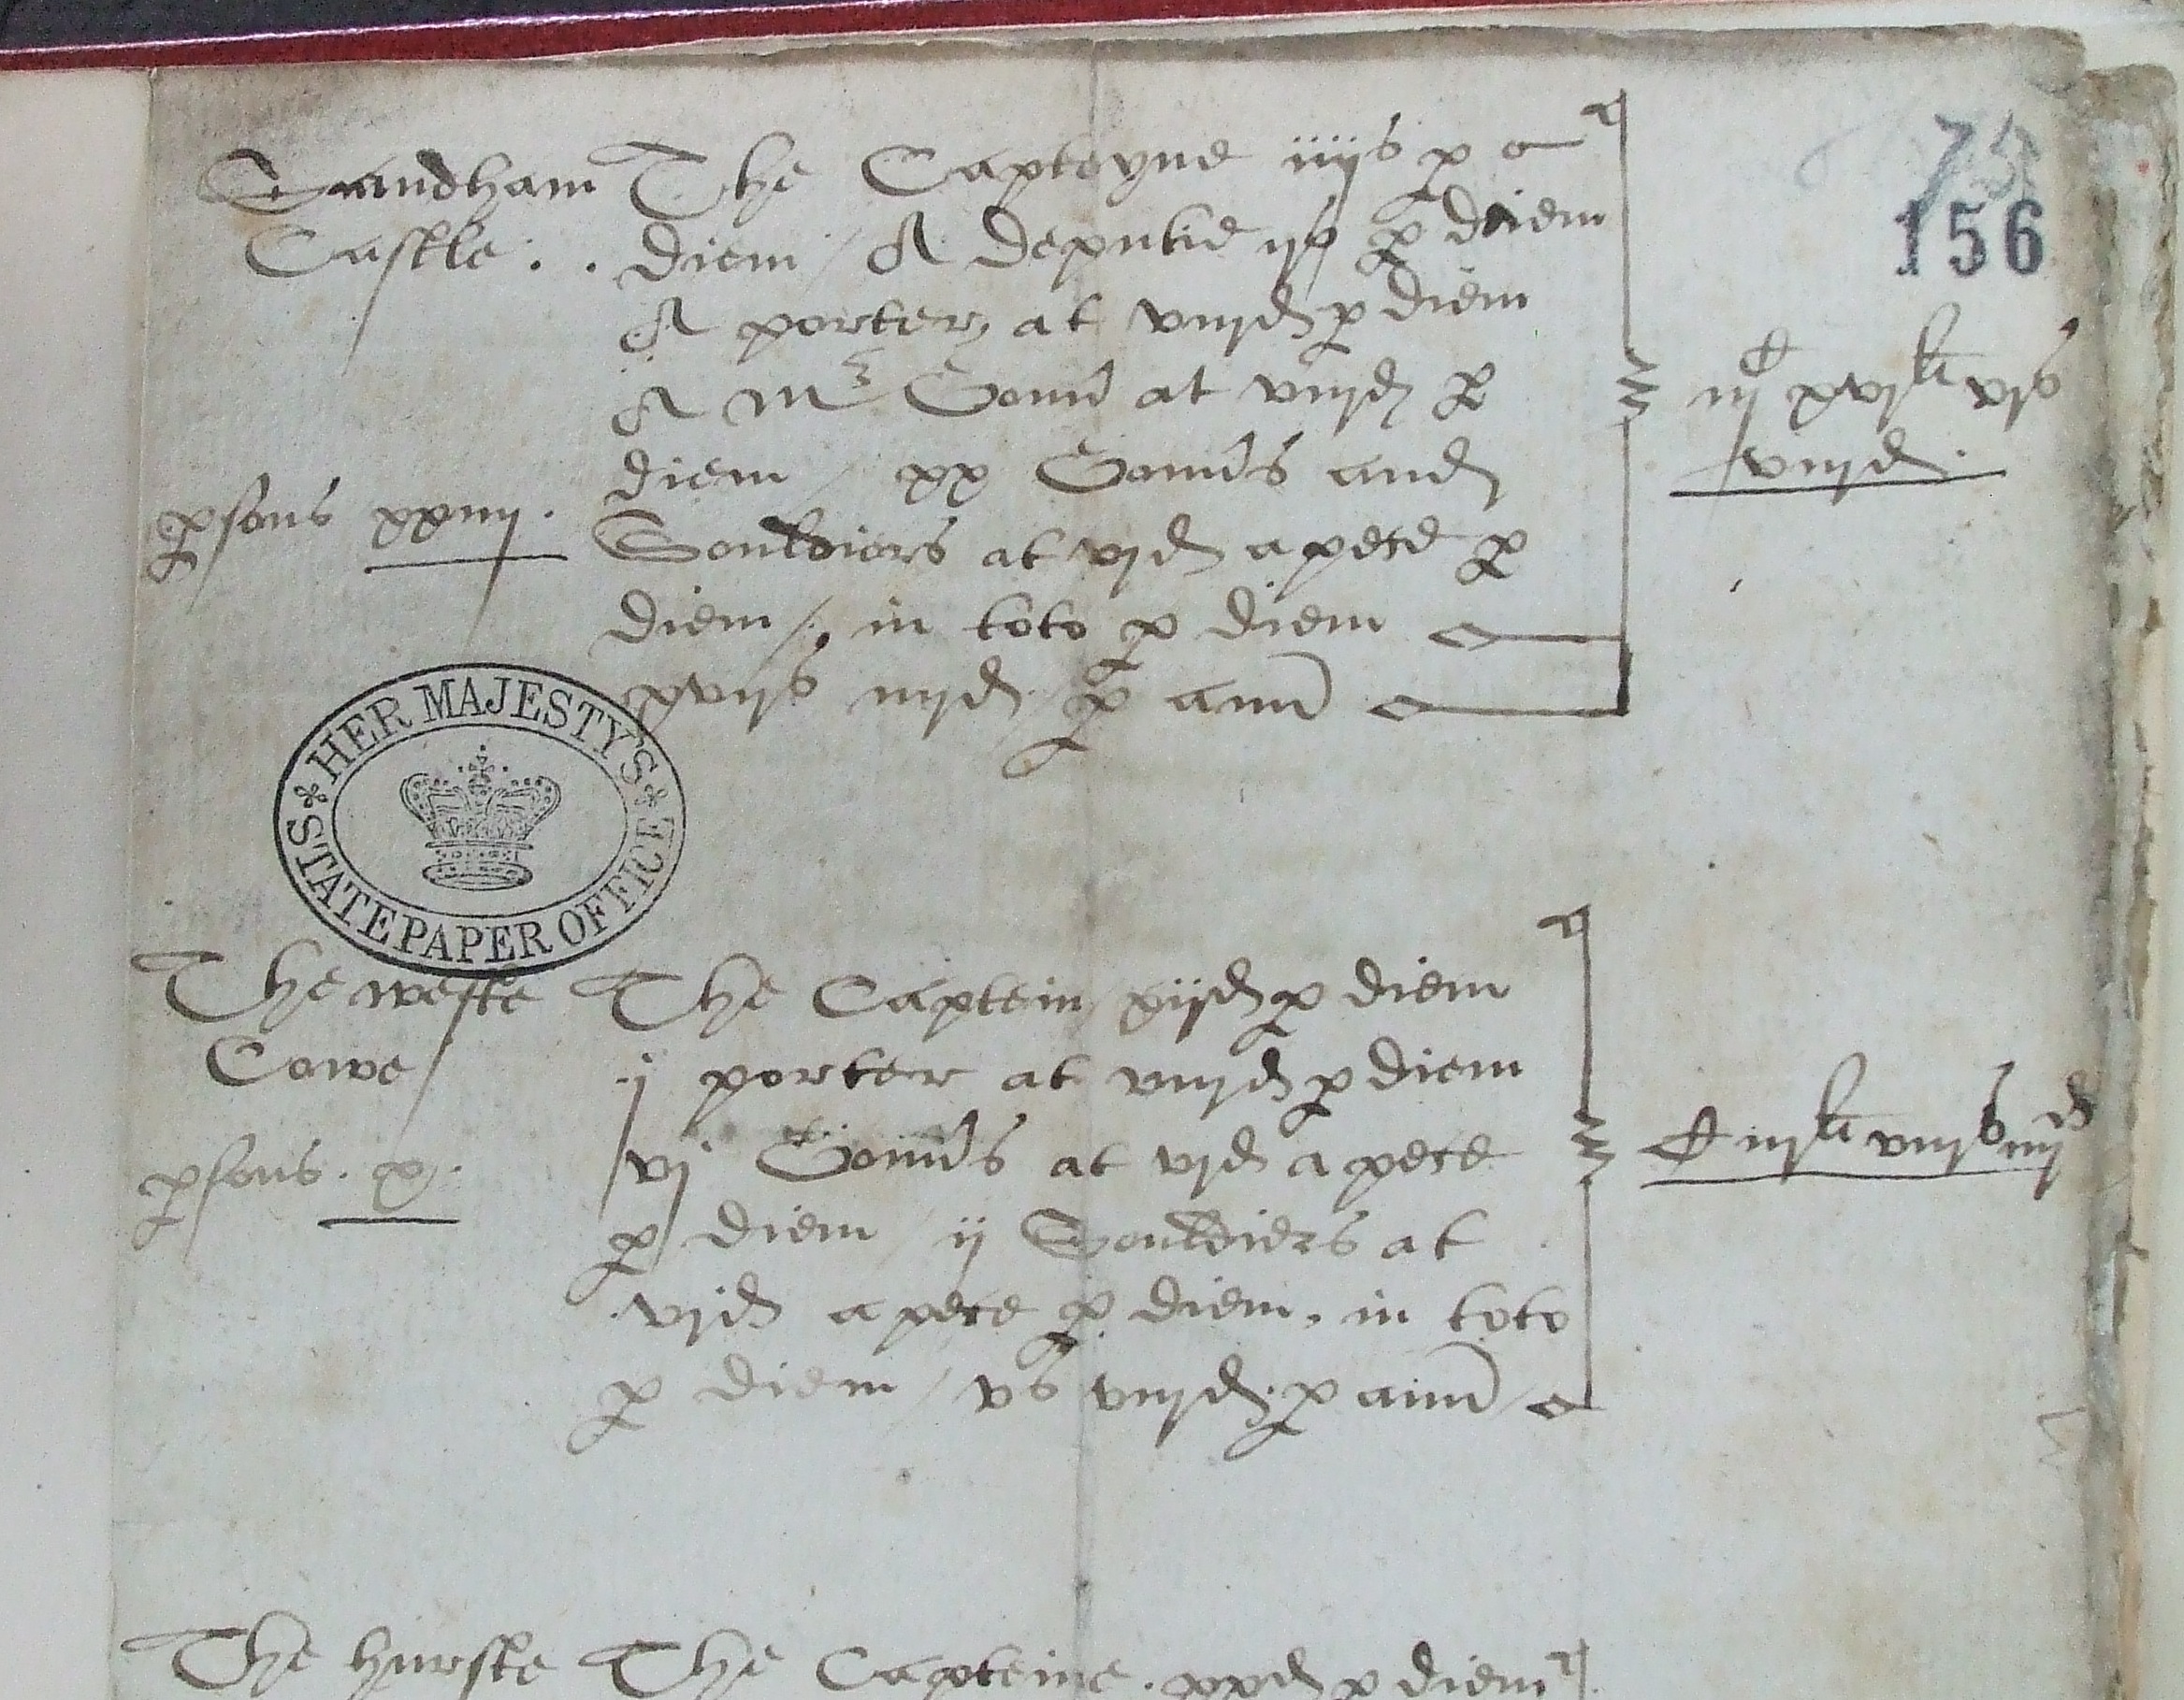 75
156
Sandham
Castle . .
The Capteyne iiijs p
diem / A deputie ijs p diem
A porter at viijd p diem
A Mr Gonn at viijd p
diem / xx Gonns and
Souldiors at vjd a pece p
diem / in toto p diem
xvijs iiijd p ann
psons xxiiij.
iijC xvjli vjs
viijd.
HER MAJESTY'S
STATE PAPER OFFICE
The weste
Cowe /
psons . x .
The Captein xijd p diem
j porter at viijd p diem
vj Gonns at vjd a pece
p diem / ij Souldiers at
vjd a pece p diem, in toto
p diem / vs viijd p ann
C iijli viijs iiijd
The hurste
The Capteine . xxd p diem